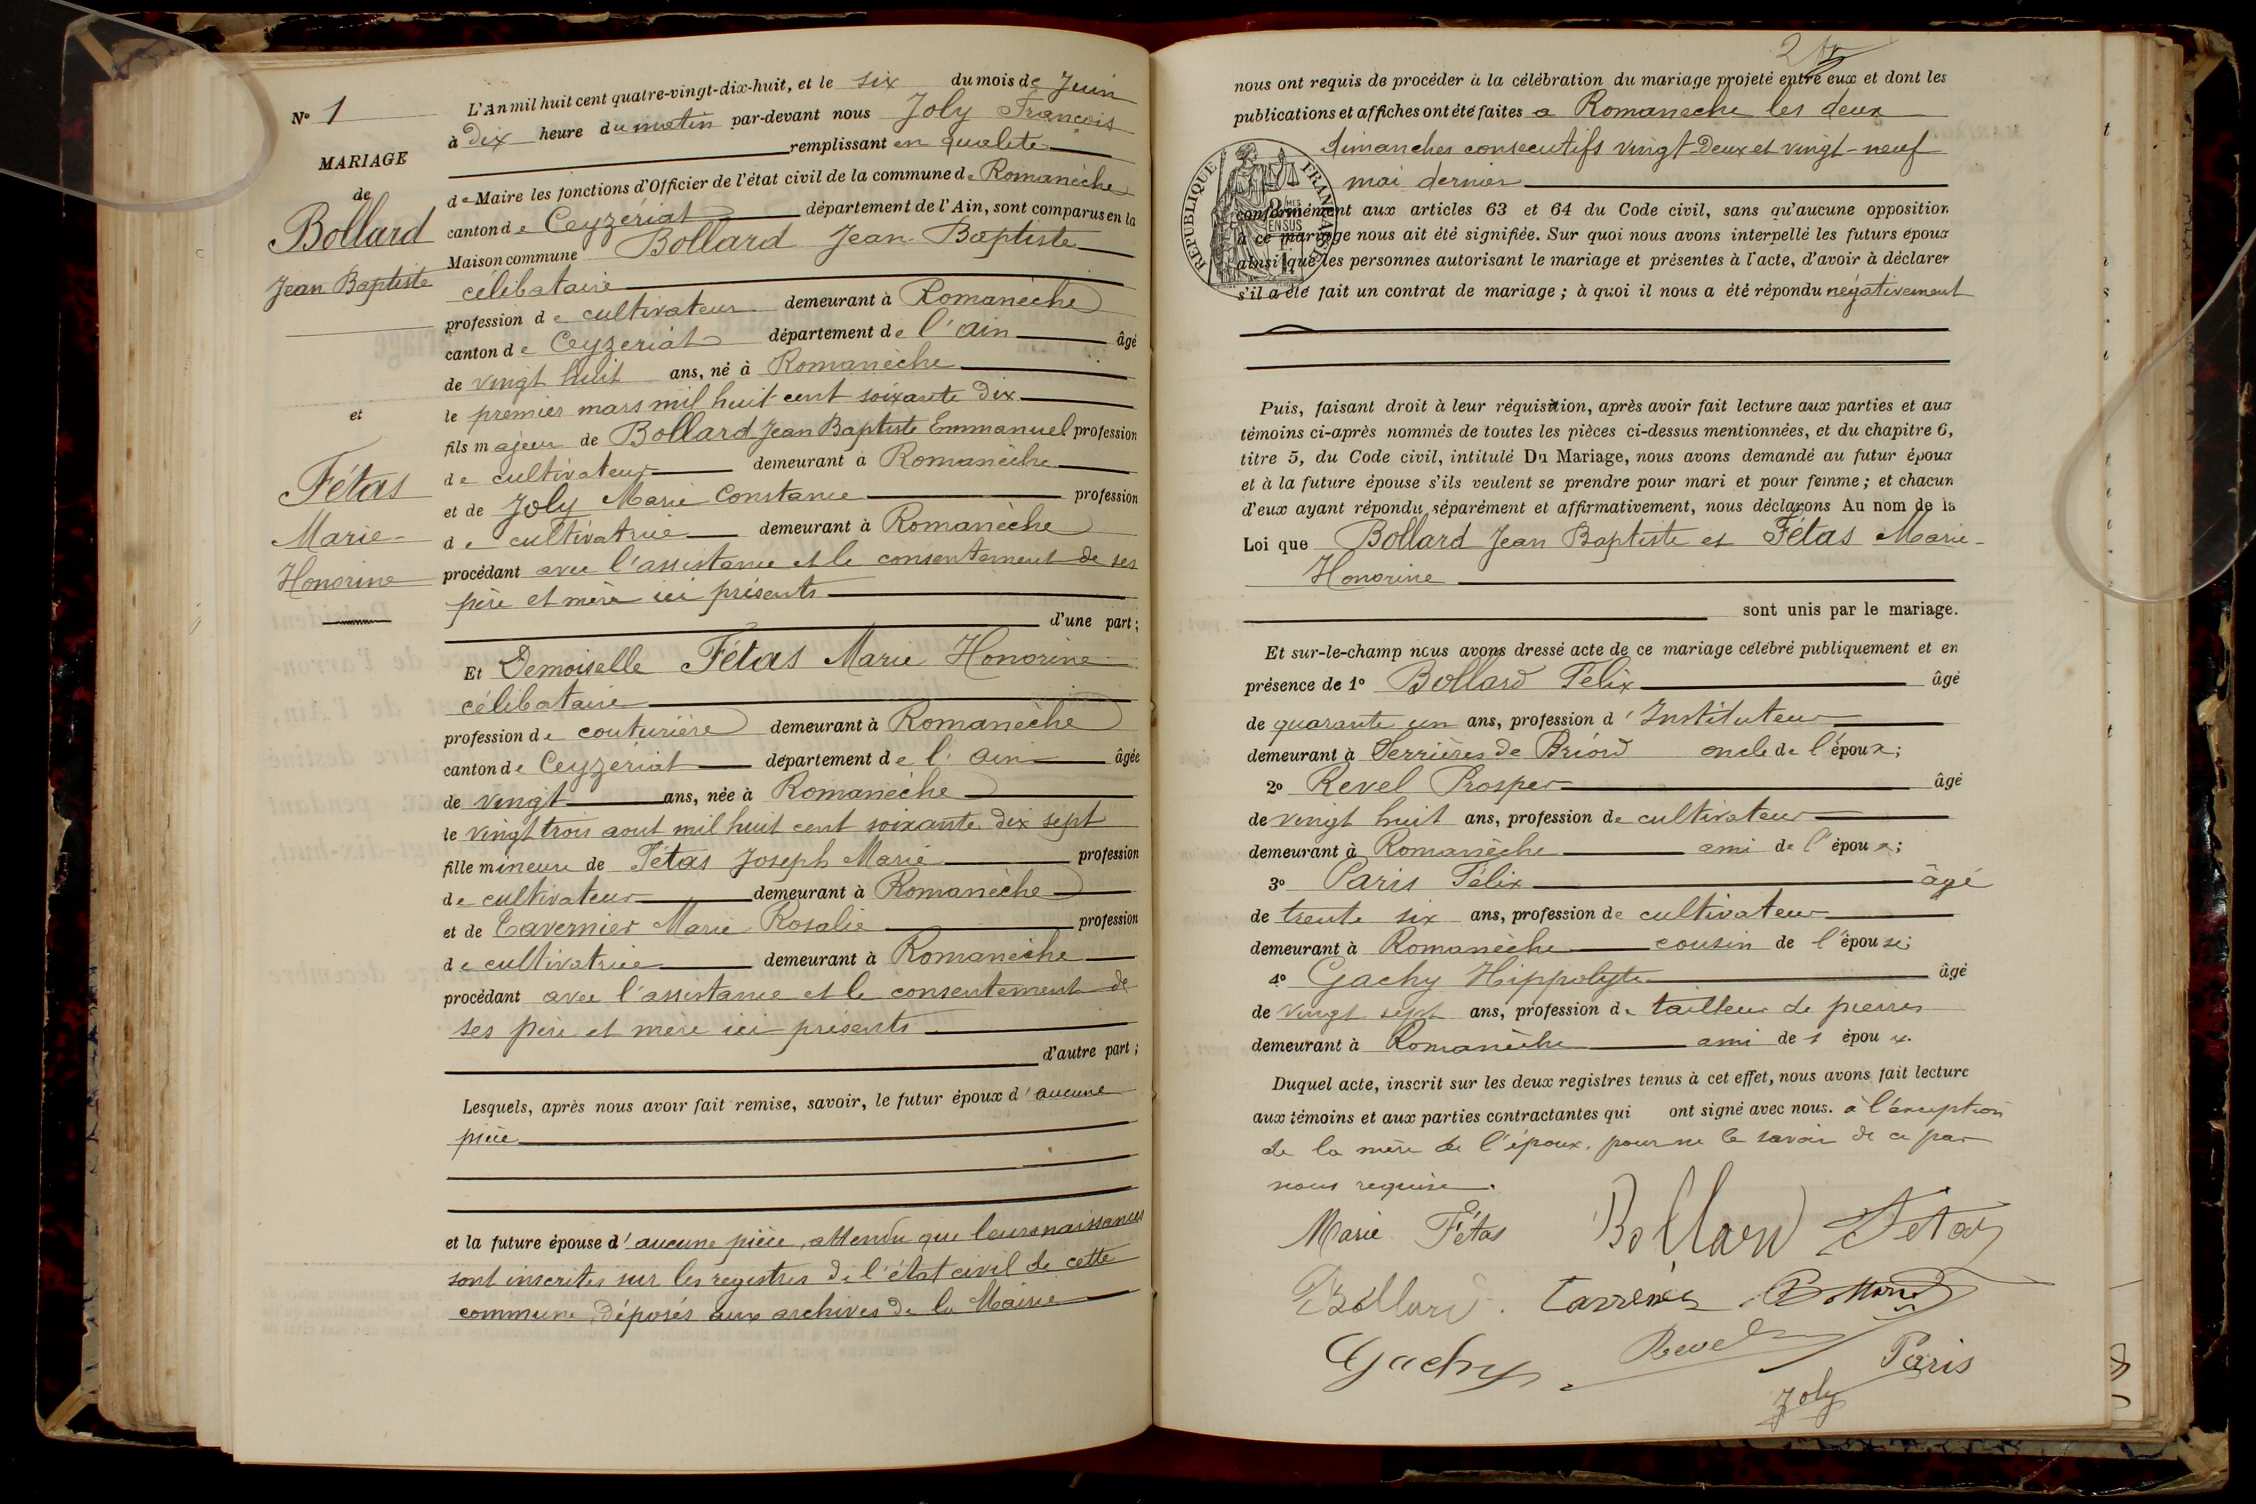 N° 1
MARIAGE
de
Bollard
Jean Baptiste
et
Fétas
Marie-
Honorine
L'An mil huit cent quatre-vingt-dix-huit, et le six du mois de Juin
à Dix heure du matin par-devant nous Joly François
remplissant en qualité
de Maire les fonctions d'Officier de l'état civil de la commune de Romanèche
canton de Ceyzériat département de l'Ain, sont comparus en la
Maison commune Bollard Jean-Baptiste
célibataire
profession de cultivateur demeurant à Romanèche
canton de Ceyzeriat département de l'ain âgé
de vingt huit ans, né à Romanèche
le premier mars mil huit cent soixante Dix
fils majeur de Bollard Jean Baptiste Emmanuel profession
de cultivateur demeurant à Romanèche
et de Joly Marie Constance profession
de cultivatrice demeurant à Romanèche
procédant avec l'assistance et le consentement de ses
père et mère ici présents
d'une part;
Et Demoiselle Fétas Marie Honorine
célibataire
profession de couturière demeurant à Romanèche
canton de Ceyzériat département de l'Ain âgée
de vingt ans, née à Romanèche
le vingt trois aout mil huit cent soixante dix sept
fille mineure de Fétas Joseph Marie profession
de cultivateur demeurant à Romanèche
et de Tavernier Marie Rosalie profession
de cultivatrice demeurant à Romanèche
procédant avec l'assistance et le consentement de
ses père et mère ici présents
d'autre part;
Lesquels, après nous avoir fait remise, savoir, le futur époux d'aucune
pièce
et la future épouse d'aucune pièce, attendu que leurs naissances
sont inscrites sur les registres de l'état civil de cette
commune, déposés aux archives de la Mairie
nous ont requis de procéder à la célébration du mariage projeté entre eux et dont les
publications et affiches ont été faites a Romanèche les deux
dimanches consecutifs vingt-Deux et vingt-neuf
mai dernier
RÉPUBLIQUE FRANÇAISE
conformément aux articles 63 et 64 du Code civil, sans qu'aucune opposition
à ce mariage nous ait été signifiée. Sur quoi nous avons interpellé les futurs époux
ainsi que les personnes autorisant le mariage et présentes à l'acte, d'avoir à déclarer
s'il a été fait un contrat de mariage; à quoi il nous a été répondu négativement
Puis, faisant droit à leur réquisition, après avoir fait lecture aux parties et aux
témoins ci-après nommés de toutes les pièces ci-dessus mentionnées, et du chapitre 6,
titre 5, du Code civil, intitulé Du Mariage, nous avons demandé au futur époux
et à la future épouse s'ils veulent se prendre pour mari et pour femme; et chacun
d'eux ayant répondu séparément et affirmativement, nous déclarons Au nom de la
Loi que Bollard Jean Baptiste et Fétas Marie-
Honorine
sont unis par le mariage.
Et sur-le-champ nous avons dressé acte de ce mariage célébré publiquement et en
présence de 1° Bollard Félix âgé
de quarante un ans, profession d'Instituteur
demeurant à Serrières de Briord oncle de l'époux;
2° Revel Prosper âgé
de vingt huit ans, profession de cultivateur
demeurant à Romanèche ami de l'époux;
3° Paris Félix âgé
de trente six ans, profession de cultivateur
demeurant à Romanèche cousin de l'épouse;
4° Gachy Hippolyte âgé
de vingt sept ans, profession de tailleur de pierres
demeurant à Romanèche ami de l'époux.
Duquel acte, inscrit sur les deux registres tenus à cet effet, nous avons fait lecture
aux témoins et aux parties contractantes qui ont signé avec nous. à l'exception
de la mère de l'époux. pour ne le savoir de ce par
nous requise.
Marie Fétas Bollard Fétas
Bollard. Bollard
Gachy Revel Paris
Joly